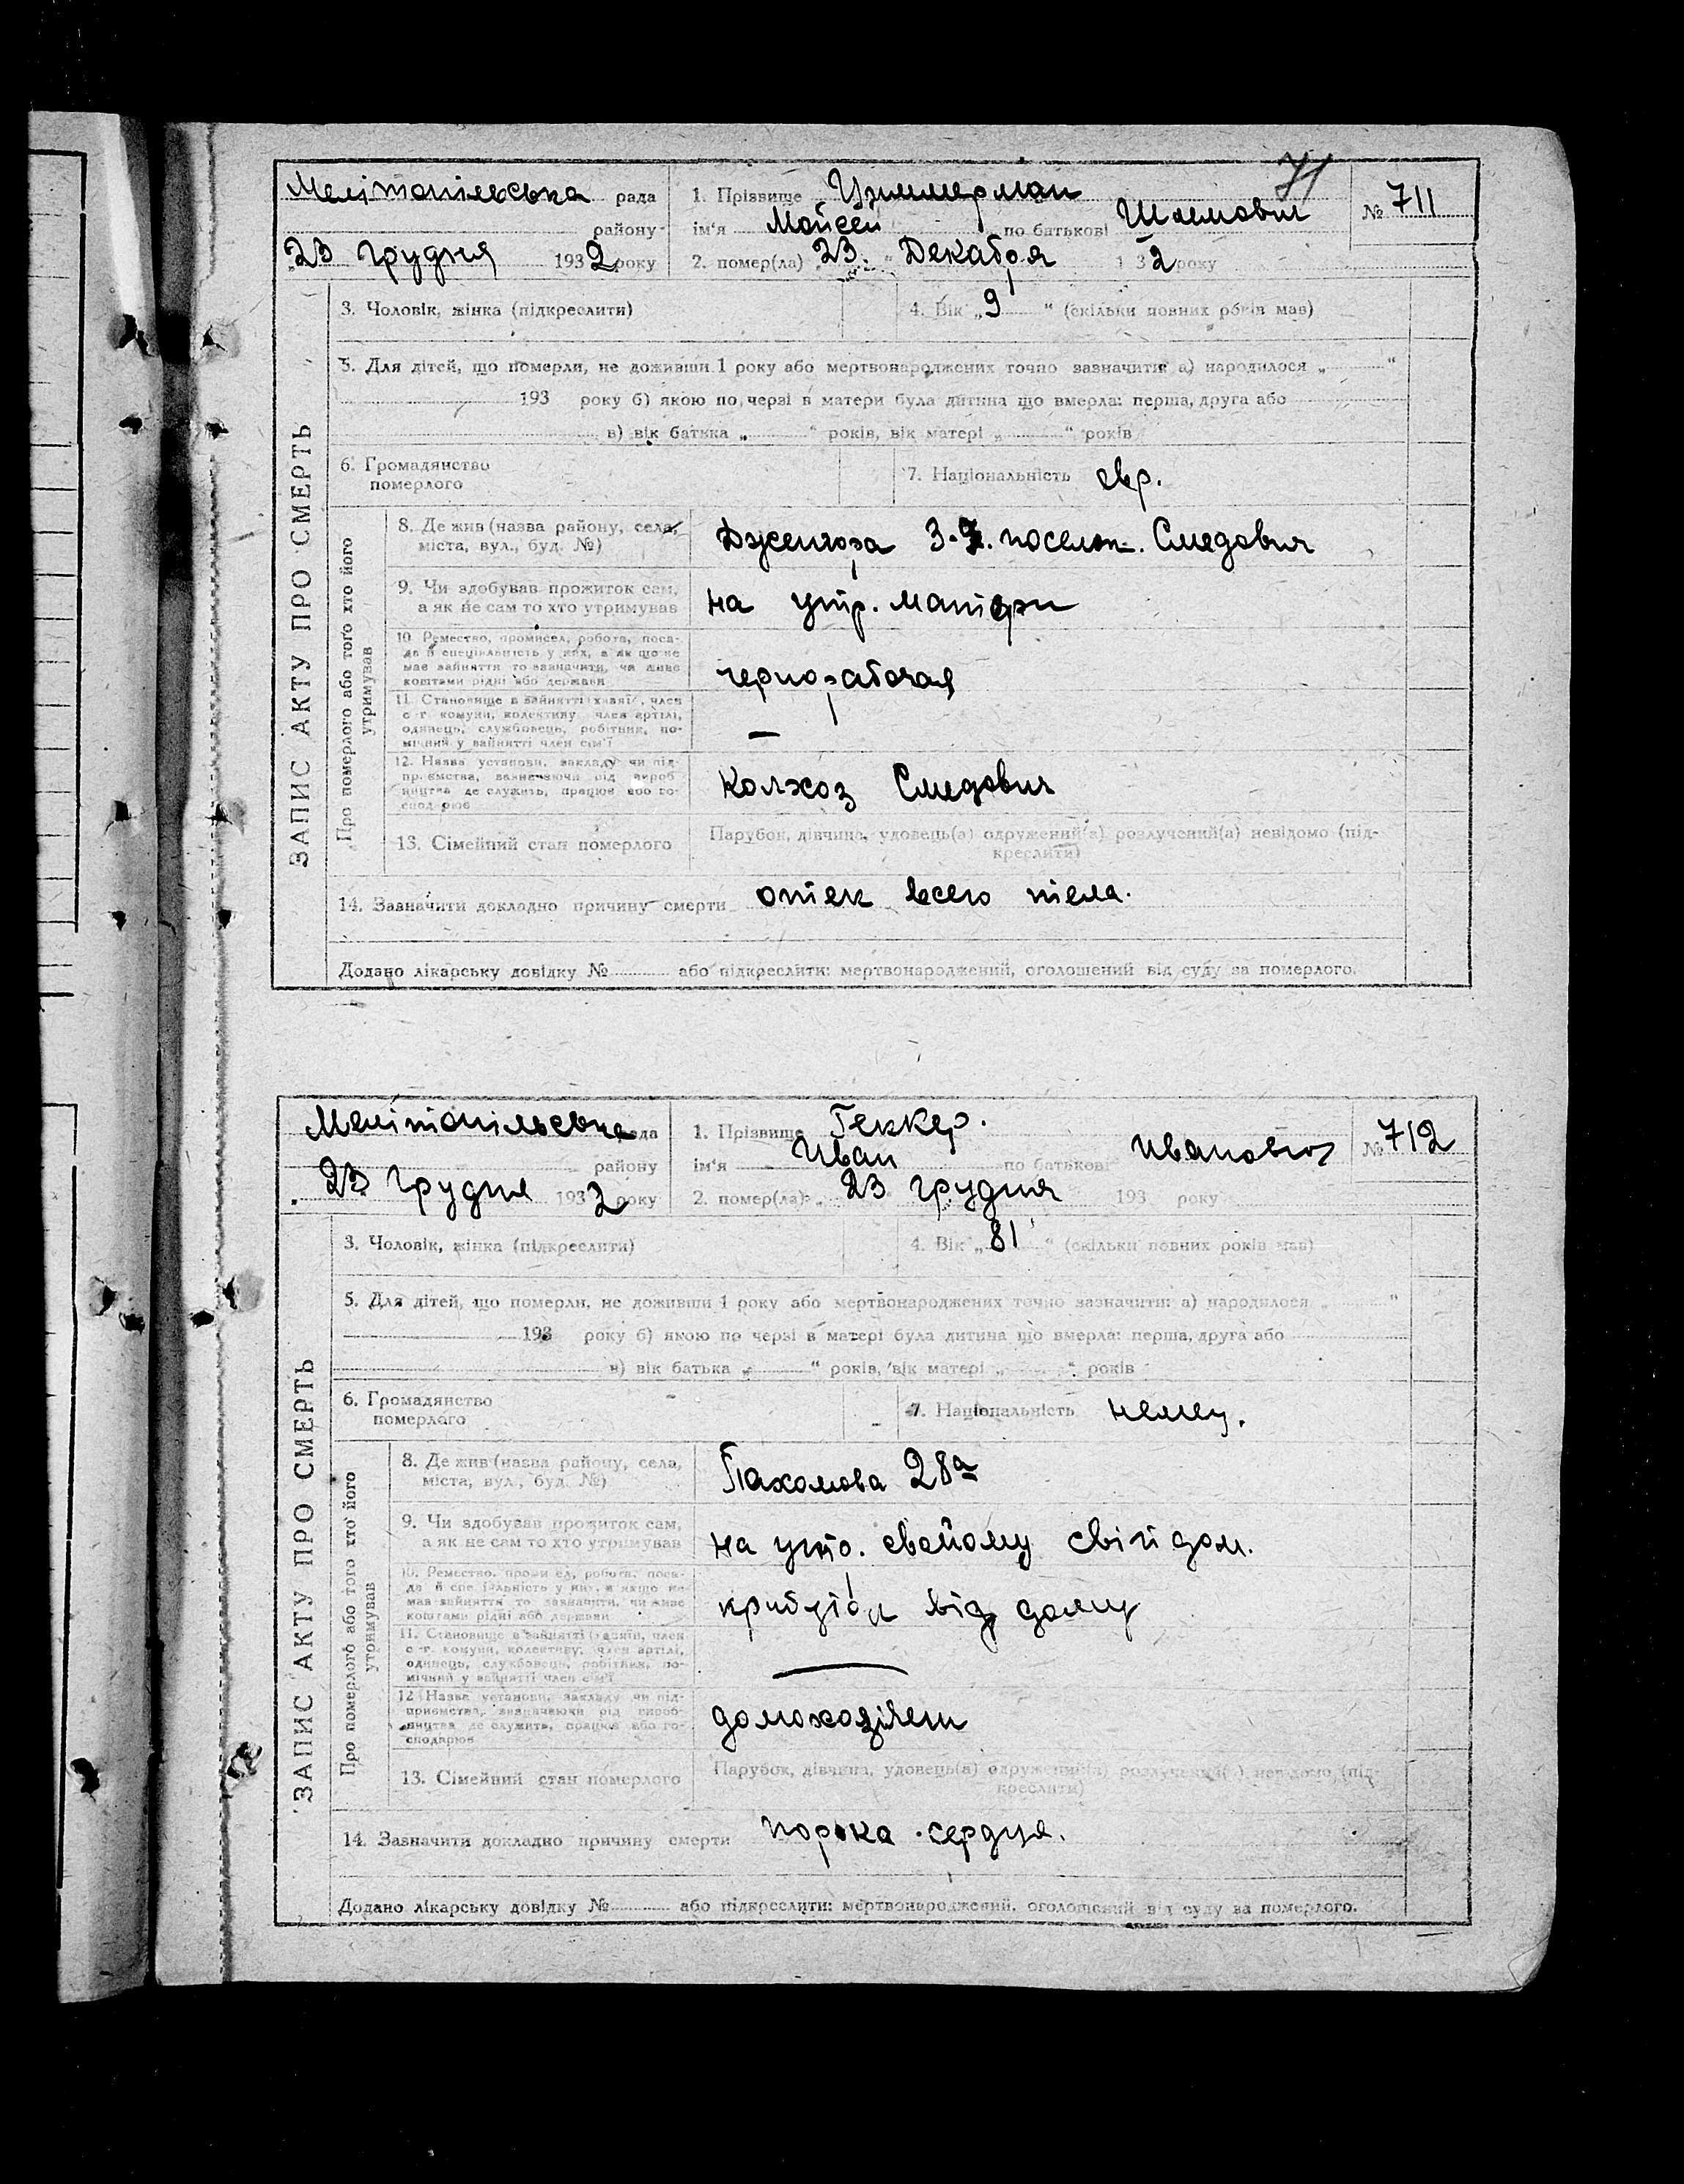 71
Мелітопільська рада
району
23 грудня 1932 року
1. Прізвище Циммерман
ім'я Мойсей по батькові Шлемович
2. помер(ла) „23." Декабря 1 32 року
№ 711
ЗАПИС АКТУ ПРО СМЕРТЬ
3. Чоловік, жінка (підкреслити)
4. Вік „9" (скільки повних років мав)
5. Для дітей, що померли, не доживши 1 року або мертвонароджених точно зазначити а) народилося „ "
193 року б) якою по черзі в матери була дитина що вмерла: перша, друга або
в) вік батька „ " років, вік матері „ " років
6. Громадянство
померлого
7. Національність евр.
Про померлого або того хто його
утримував
8. Де жив (назва району, села,
міста, вул., буд. №)
поселок. Смедович
9. Чи здобував прожиток сам,
а як не сам то хто утримував
на утр. матери
10. Ремество, промисел, робота, поса-
да й спеціяльність у них, а як що не
мав зайняття то зазначити, чи живе
коштами рідні або держави
чернорабочая
11. Становище в зайнятті хазяїн, член
с-г. комуни, колективу член артілі,
одинець, службовець, робітник, по-
мічний у зайнятті член сім'ї
—
12. Назва установи, закладу чи під-
приємства, зазначаючи рід вироб
ництва де служить, працює або го-
сподарює
Колхоз Смедович
13. Сімейний стан померлого
Парубок, дівчина, удовець(а) одружений(а) розлучений(а) невідомо (під-
креслити)
14. Зазначити докладно причину смерти отек всего тела.
Додано лікарську довідку № або підкреслити: мертвонароджений, оголошений від суду за померлого.
Мелітопільська рада
району
23 грудня 1932 року
1. Прізвище Геккер.
ім'я Иван по батькові Иванович
2. помер(ла) „ 23 грудня 193 року
№ 712
ЗАПИС АКТУ ПРО СМЕРТЬ
3. Чоловік, жінка (підкреслити)
4. Вік „81" (скільки повних років мав)
5. Для дітей, що померли, не доживши 1 року або мертвонароджених точно зазначити: а) народилося „ "
193 року б) якою по черзі в матері була дитина що вмерла: перша, друга або
в) вік батька „ " років, вік матері „ " років
6. Громадянство
померлаго
7. Національність немец.
Про померлого або того хто його
утримував
8. Де жив (назва району, села,
міста, вул., буд. №)
Пахомова 28а
9. Чи здобував прожиток сам,
а як не сам то хто утримував
на утр. свойому свій дом.
10. Ремество, промисел, робота, поса-
да й спеціяльність у них, а якщо не
мав зайняття то зазначити, чи живе
коштами рідні або держави
прибуток від дому
11. Становище в зайнятті хазяїн, член
с-г. комуни, колективу, член артілі,
одинець, службовець, робітник, по-
мічний у зайнятті член сім'ї
—
12 Назва установи, закладу чи під-
приємства, зазначаючи рід вироб-
ництва де служить, працює або го-
сподарює
13. Сімейний стан померлого
Парубок, дівчина, удовець(а) одружений(а) розлучений(а) невідомо (під-
креслити)
14. Зазначити докладно причину смерти порока сердця.
Додано лікарську довідку № або підкреслити: мертвонароджений, оголошений від суду за померлого.